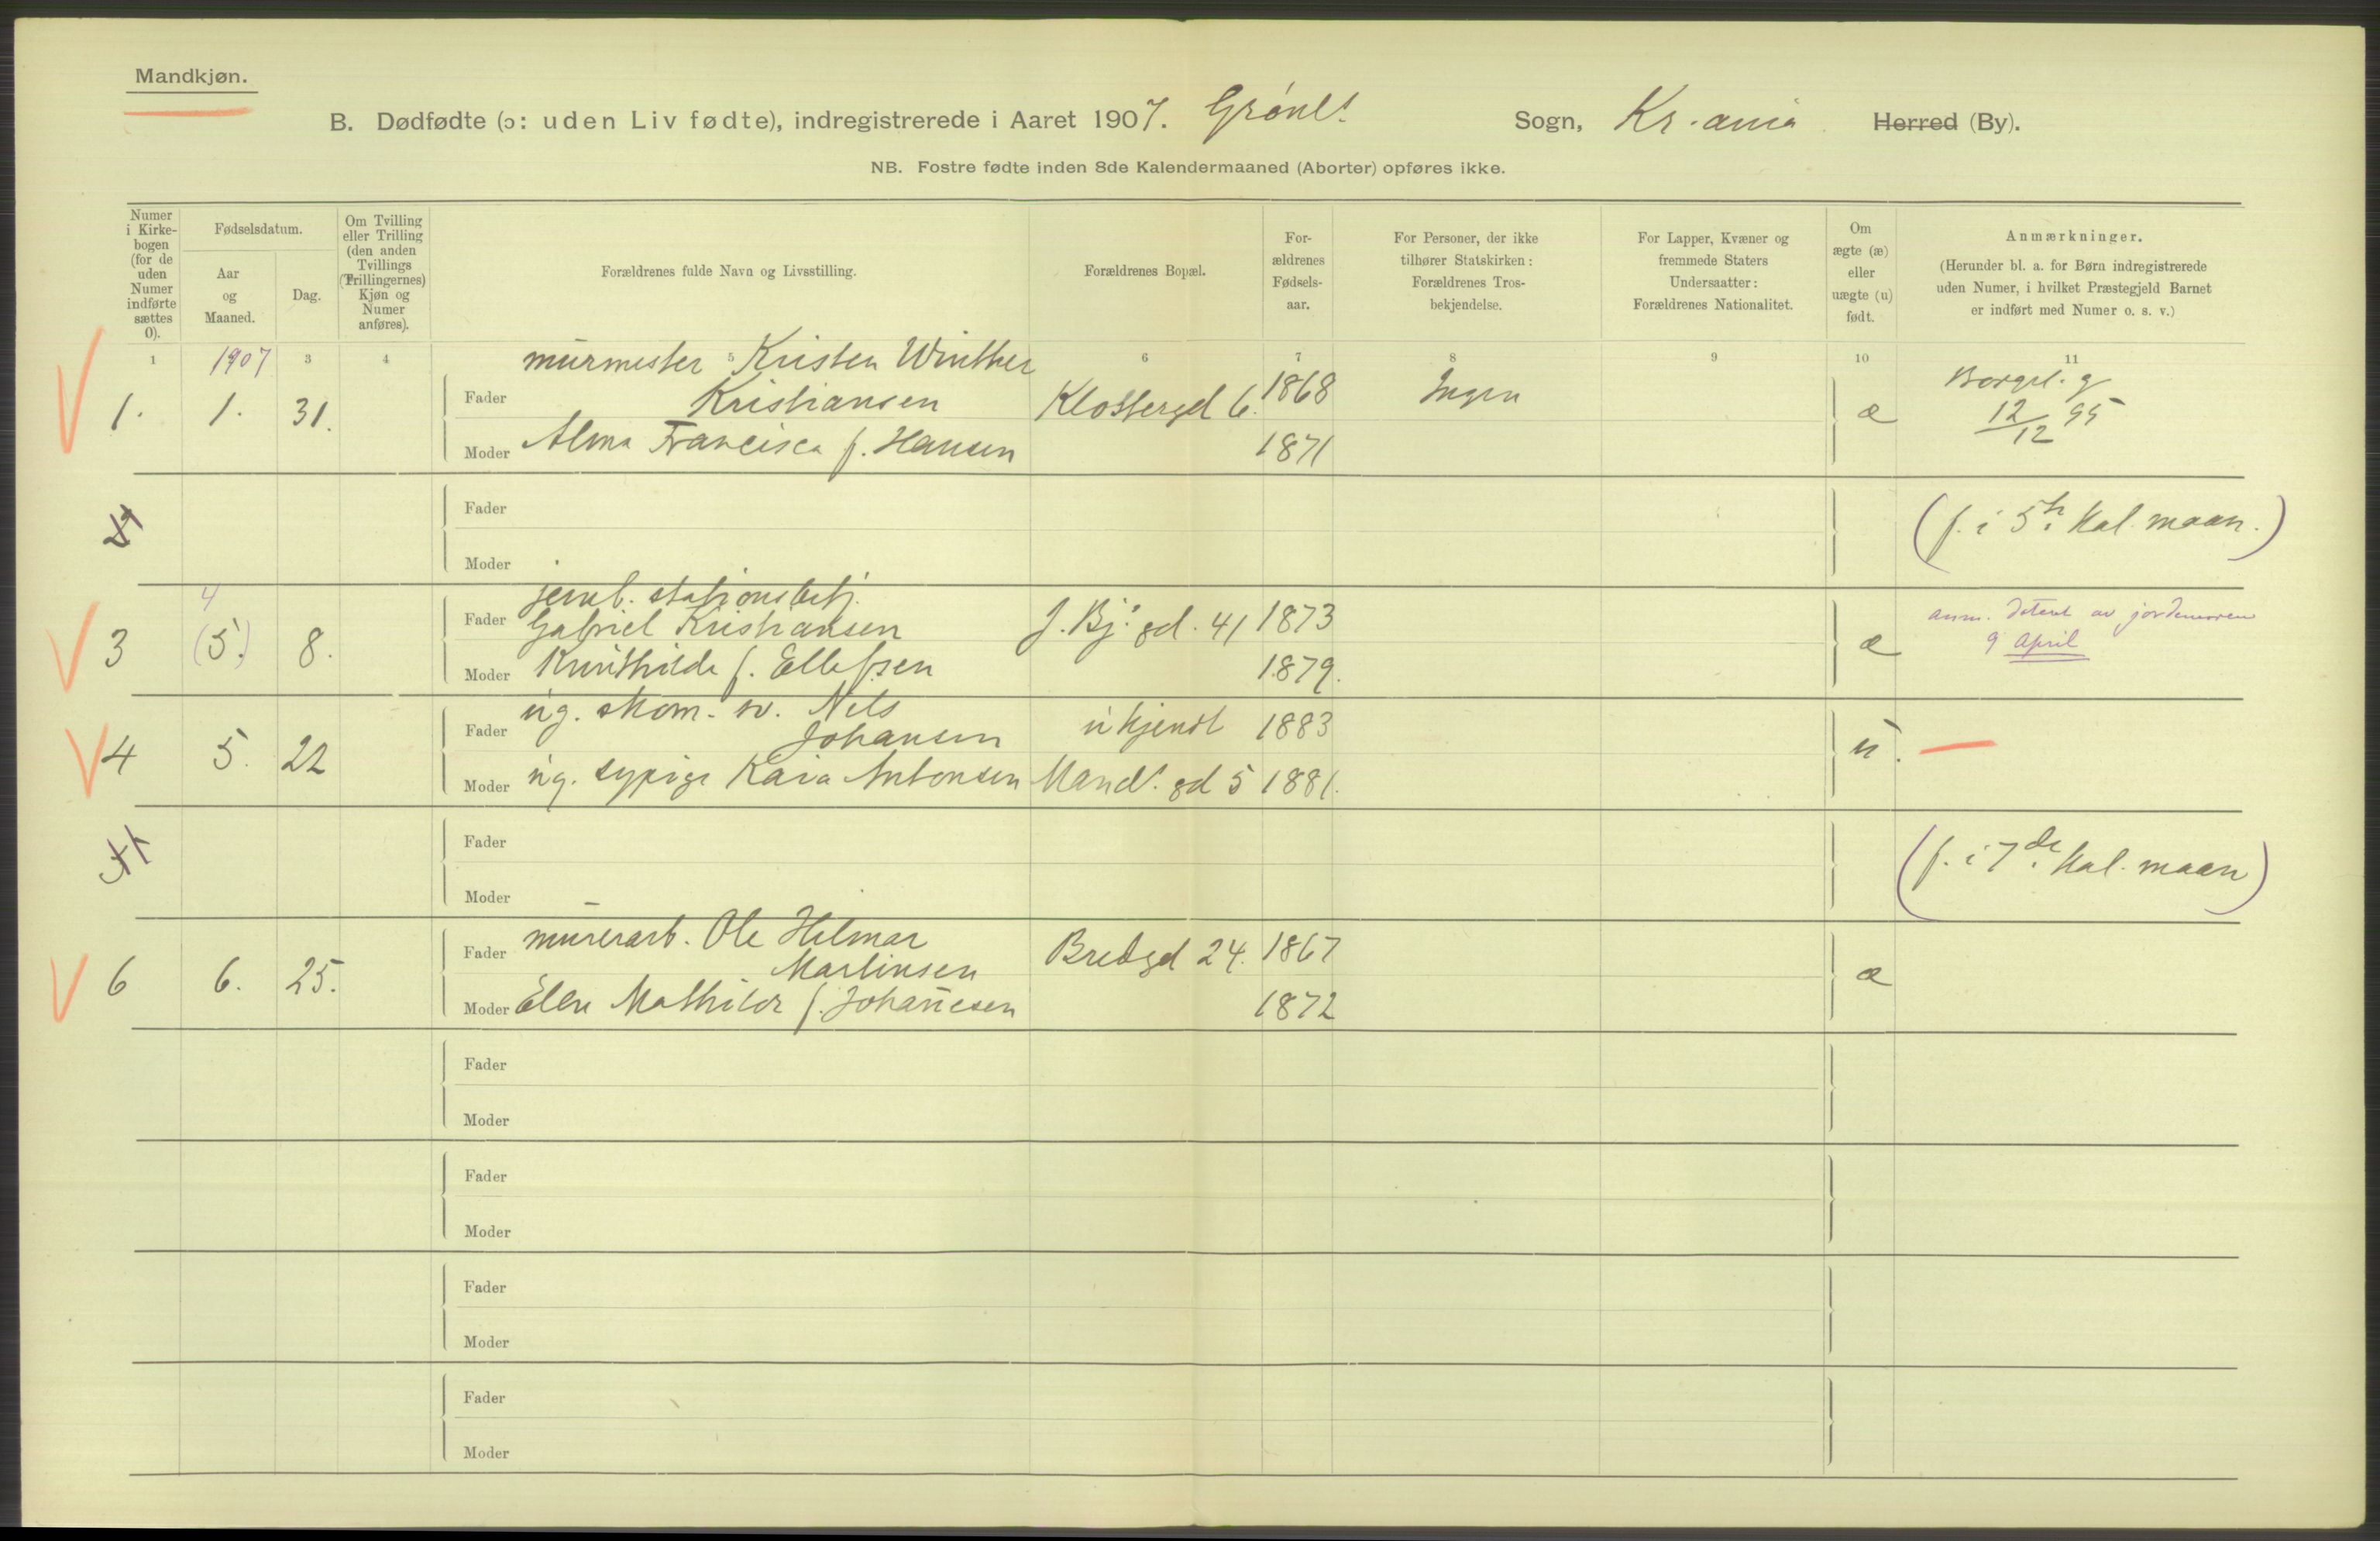 Mandkjøn.
B. Dødfødte (ɔ: uden Liv fødte), indregistrerede i Aaret 1907. Grønl. Sogn, Kr.ania Herred (By).
NB. Fostre fødte inden 8de Kalendermaaned (Aborter) opføres ikke.
Numer i Kirkebogen (for de uden Numer indførte sættes 0).
Fødselsdatum.
Aar og Maaned.
Dag.
Om Tvilling eller Trilling (den anden Tvillings (Trillingernes) Kjøn og Numer anføres).
Forældrenes fulde Navn og Livsstilling.
Forældrenes Bopæl.
Forældrenes Fødselsaar.
For Personer, der ikke tilhører Statskirken: Forældrenes Trosbekjendelse.
For Lapper, Kvæner og fremmede Staters Undersaatter: Forældrenes Nationalitet.
Om ægte (æ) eller uægte (u) født.
Anmærkninger.
(Herunder bl. a. for Børn indregistrerede uden Numer, i hvilket Præstegjeld Barnet er indført med Numer o. s. v.)
1 1907 3 4 5 6 7 8 9 10 11
murmester Kristen Winther
1. 1. 31. Fader Kristiansen Klostergd 6. 1868 Ingen æ Borgel. g 12/12 95
Moder Alma Francisca f. Hansen 1871
Fader
(f. i 5te Kal. maan.)
Moder
4 jernb. stationsbetj.
3 (5.) 8. Fader Gabriel Kristiansen J. Bj. gd. 41 1873 æ anm. datert av jordemoren
9 April
Moder Kunthilde f. Ellefsen 1879.
ug. skom. sv. Nils
4 5. 22 Fader Johansen ukjendt 1883 u.
Moder ug. sypige Kaia Antonsen Mand. gd 5 1881.
Fader
(f. i 7de Kal. maan)
Moder
6 6. 25. Fader murerarb. Ole Hilmar
Martinsen Bredgd 24. 1867 æ
Moder Ellen Mathilde f. Johannesen 1872
Fader
Moder
Fader
Moder
Fader
Moder
Fader
Moder